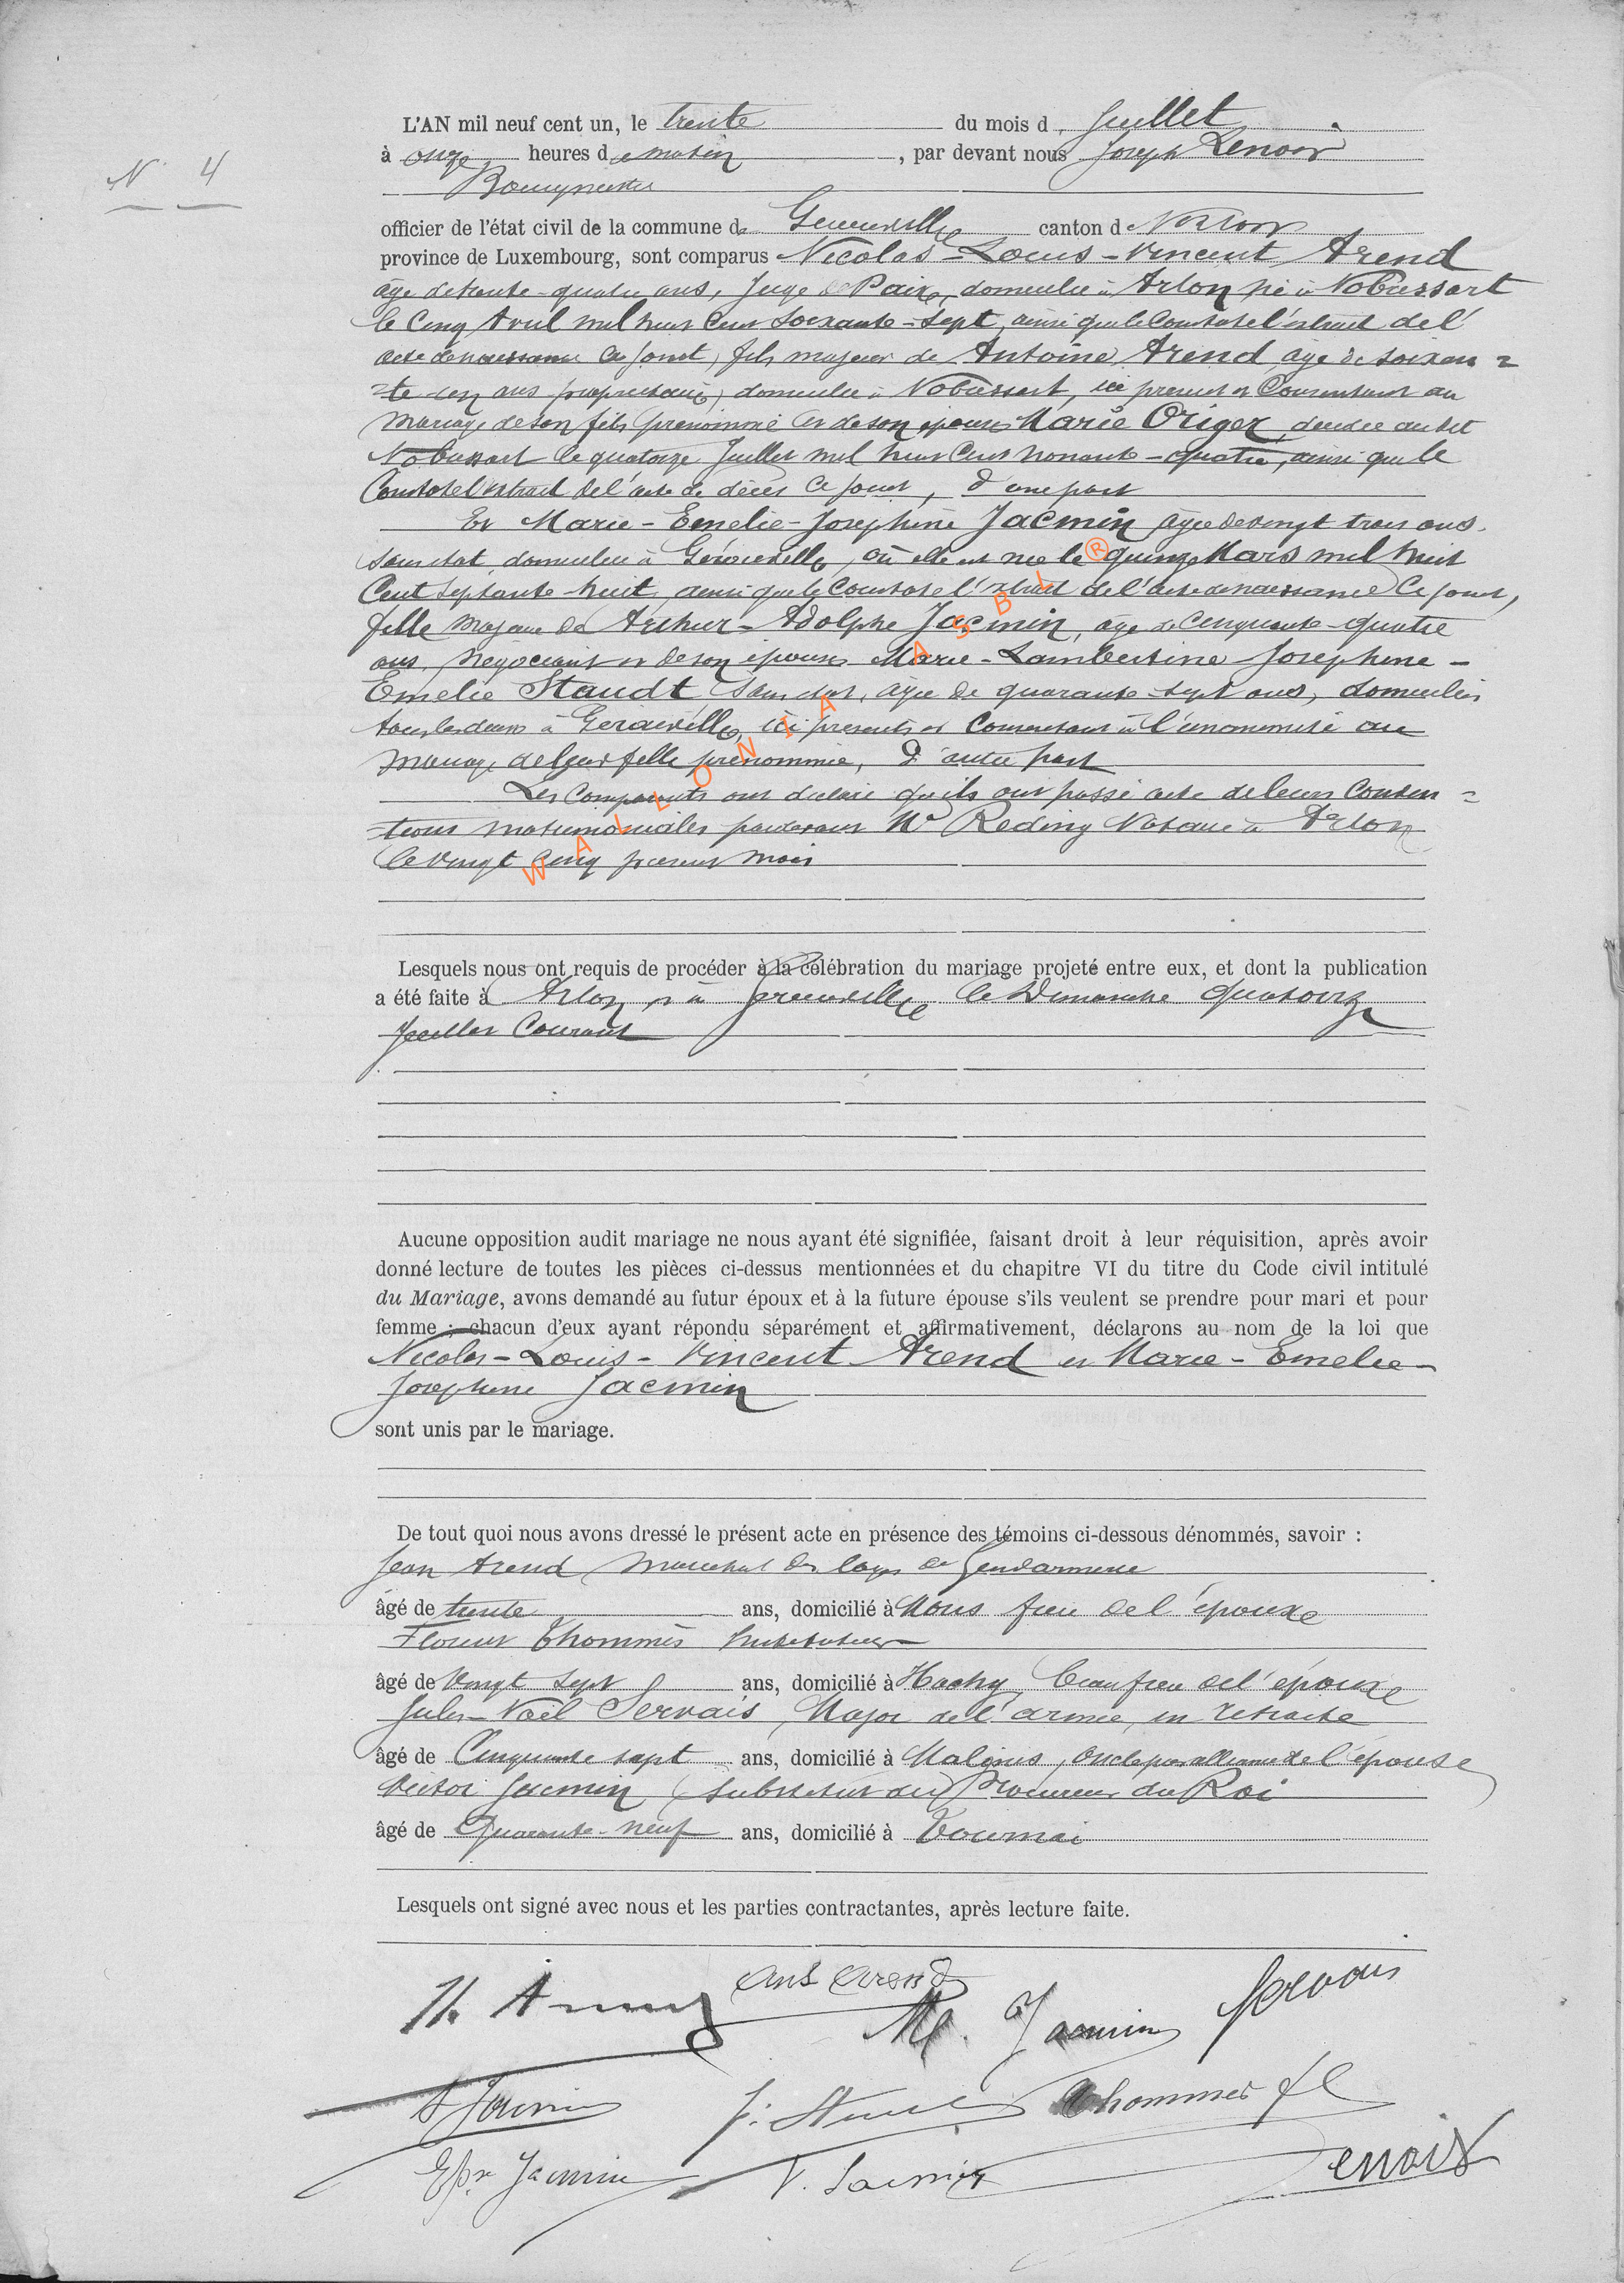 N° 4
L'AN mil neuf cent un, le trente du mois de Juillet
à onze heures du matin, par devant nous Joseph Lenoir
Bourgmestre
officier de l'état civil de la commune de Gerouville canton de Virton
province de Luxembourg, sont comparus Nicolas-Louis-Vincent Arend
âgé de trente-quatre ans, Juge de Paix, domicilié à Arlon né à Nobressart
le cinq Avril mil huit cent soixante-sept, ainsi que le constate l'extrait de l'
acte de naissance ci joint, fils majeur de Antoine Arend âgé de soixan=
=te ans propriétaire, domicilié à Nobressart, ici présent et consentant au
mariage de son fils prénommé et de son épouse Marie Origer, décédée au dit
Nobressart le quatorze Juillet mil huit cent nonante-quatre, ainsi que le
constate l'extrait de l'acte de décès ci joint, d'une part
Et Marie-Emelie-Josephine Jacmin âgée de vingt trois ans,
sans état, domiciliée à Gérouville, où elle est née le quinze Mars mil huit
cent septante-huit, ainsi que le constate l'extrait de l'acte de naissance ci joint,
fille majeure de Arthur-Adolphe Jacmin, âgé de cinquante-quatre
ans, négociant et de son épouse Marie-Lambertine Josephine-
Emelie Staudt, sans état, âgée de quarante-sept ans, domiciliés
tous les deux à Gérouville, ici présents et consentant à l'unanimité au
mariage de leur fille prénommée, d'autre part
Les comparants ont déclaré qu'ils ont passé acte de leurs conven=
=tions matrimoniales pardevant Me Reding Notaire à Arlon
le vingt cinq présent mois
WALLONIA ASBL ®
Lesquels nous ont requis de procéder à la célébration du mariage projeté entre eux, et dont la publication
a été faite à Arlon et à Gerouville le Dimanche quatorze
Juillet courant
Aucune opposition audit mariage ne nous ayant été signifiée, faisant droit à leur réquisition, après avoir
donné lecture de toutes les pièces ci-dessus mentionnées et du chapitre VI du titre du Code civil intitulé
du Mariage, avons demandé au futur époux et à la future épouse s'ils veulent se prendre pour mari et pour
femme ; chacun d'eux ayant répondu séparément et affirmativement, déclarons au nom de la loi que
Nicolas-Louis-Vincent Arend et Marie-Emelie-
Josephine Jacmin
sont unis par le mariage.
De tout quoi nous avons dressé le présent acte en présence des témoins ci-dessous dénommés, savoir :
Jean Arend Marechal des logis de Gendarmerie
âgé de trente ans, domicilié à Mons frère de l'époux
Florent Thommès Instituteur
âgé de vingt sept ans, domicilié à Hachy, beau frère de l'époux
Jules-Noël Servais, Major de l'armée, en retraite
âgé de cinquante sept ans, domicilié à Malines, oncle par alliance de l'épouse
Victor Jacmin, substitut du Procureur du Roi
âgé de quarante-neuf ans, domicilié à Tournai
Lesquels ont signé avec nous et les parties contractantes, après lecture faite.
N. Arend Ant Arend M. Jacmin Servais
A Jacmin Thommes fl
Jacmin V. Jacmin Lenoir